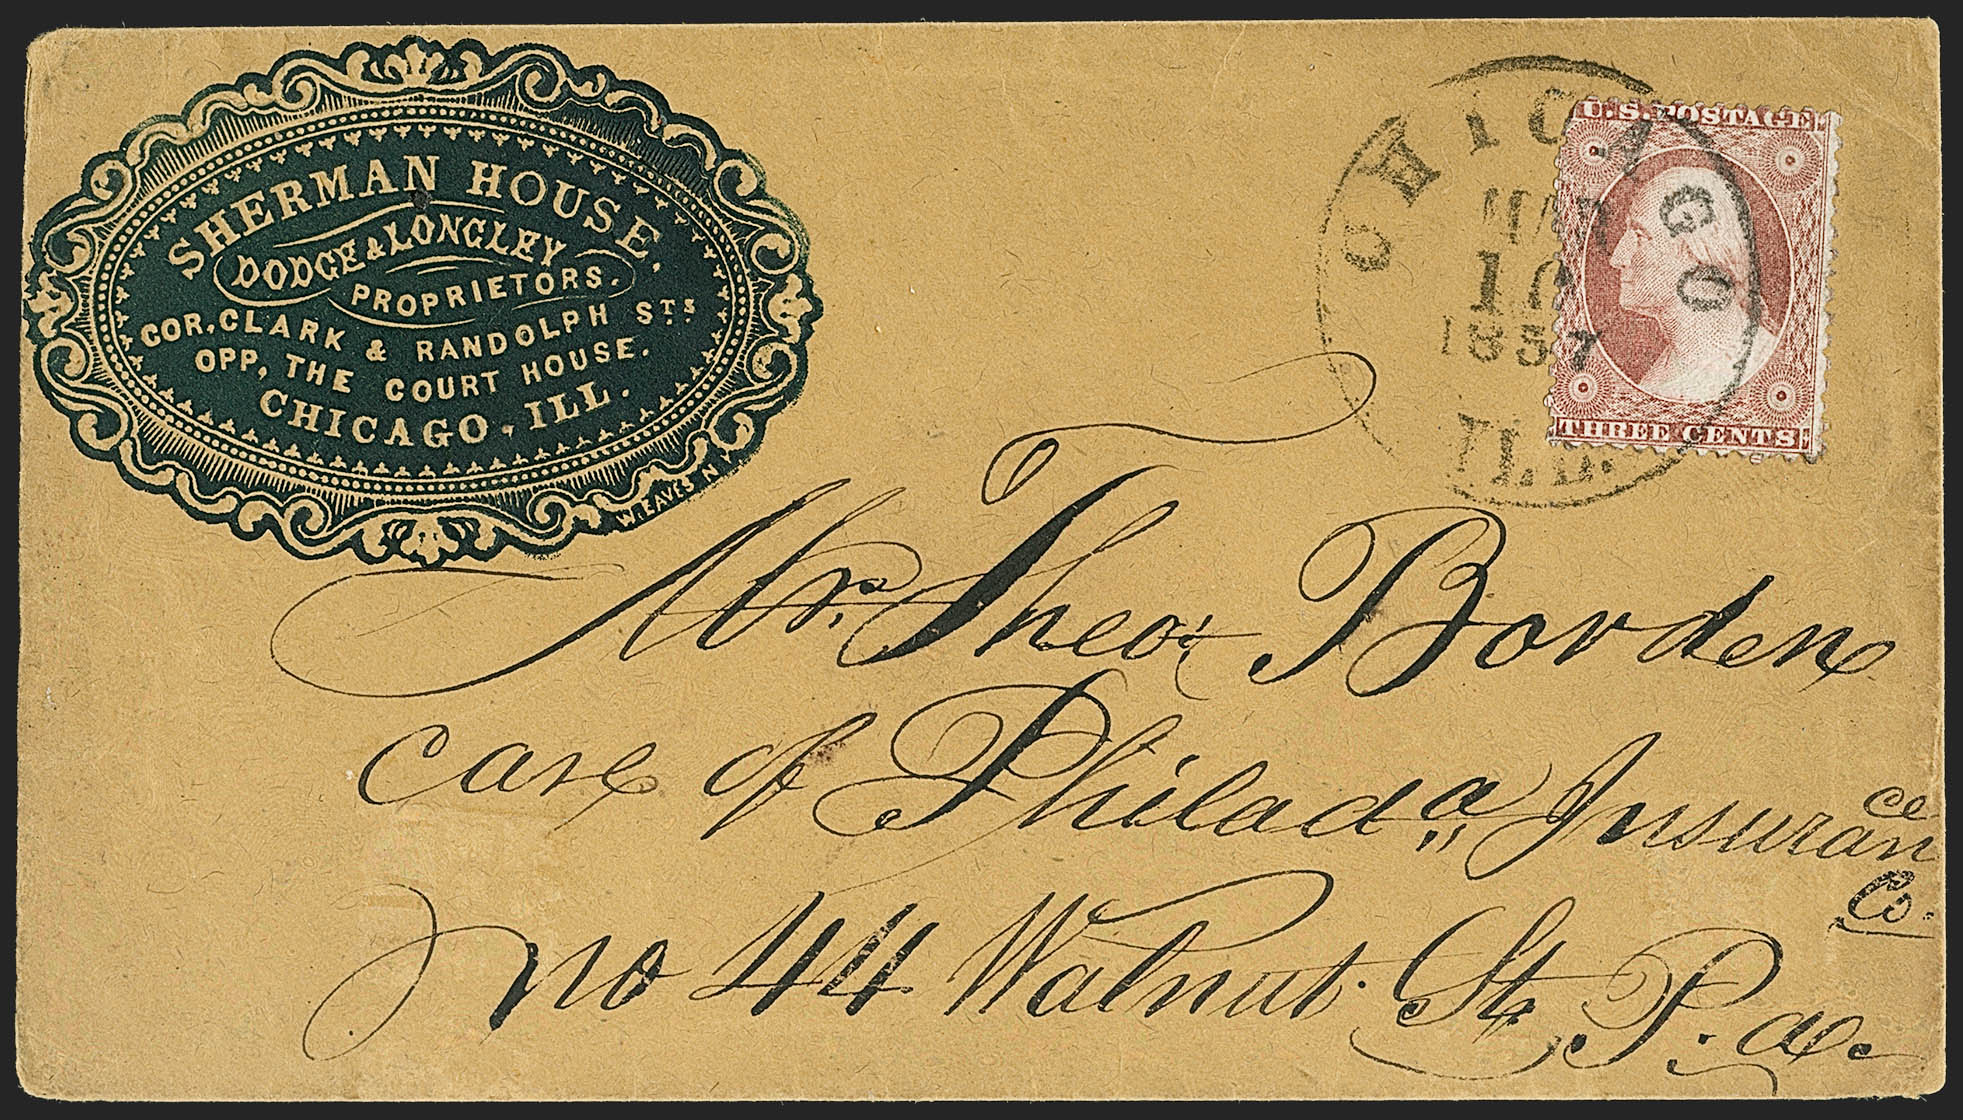 SHERMAN HOUSE,
DODGE & LONGLEY
PROPRIETORS.
COR. CLARK & RANDOLPH STS
OPP, THE COURT HOUSE.
CHICAGO, ILL.
WEAVES N.Y.
CHICAGO
MAR
10
1857
ILL.
U.S. POSTAGE
THREE CENTS
Mr. Theo: Borden
care of Philada Insurance
Co.
No 44 Walnut. St. P. a.